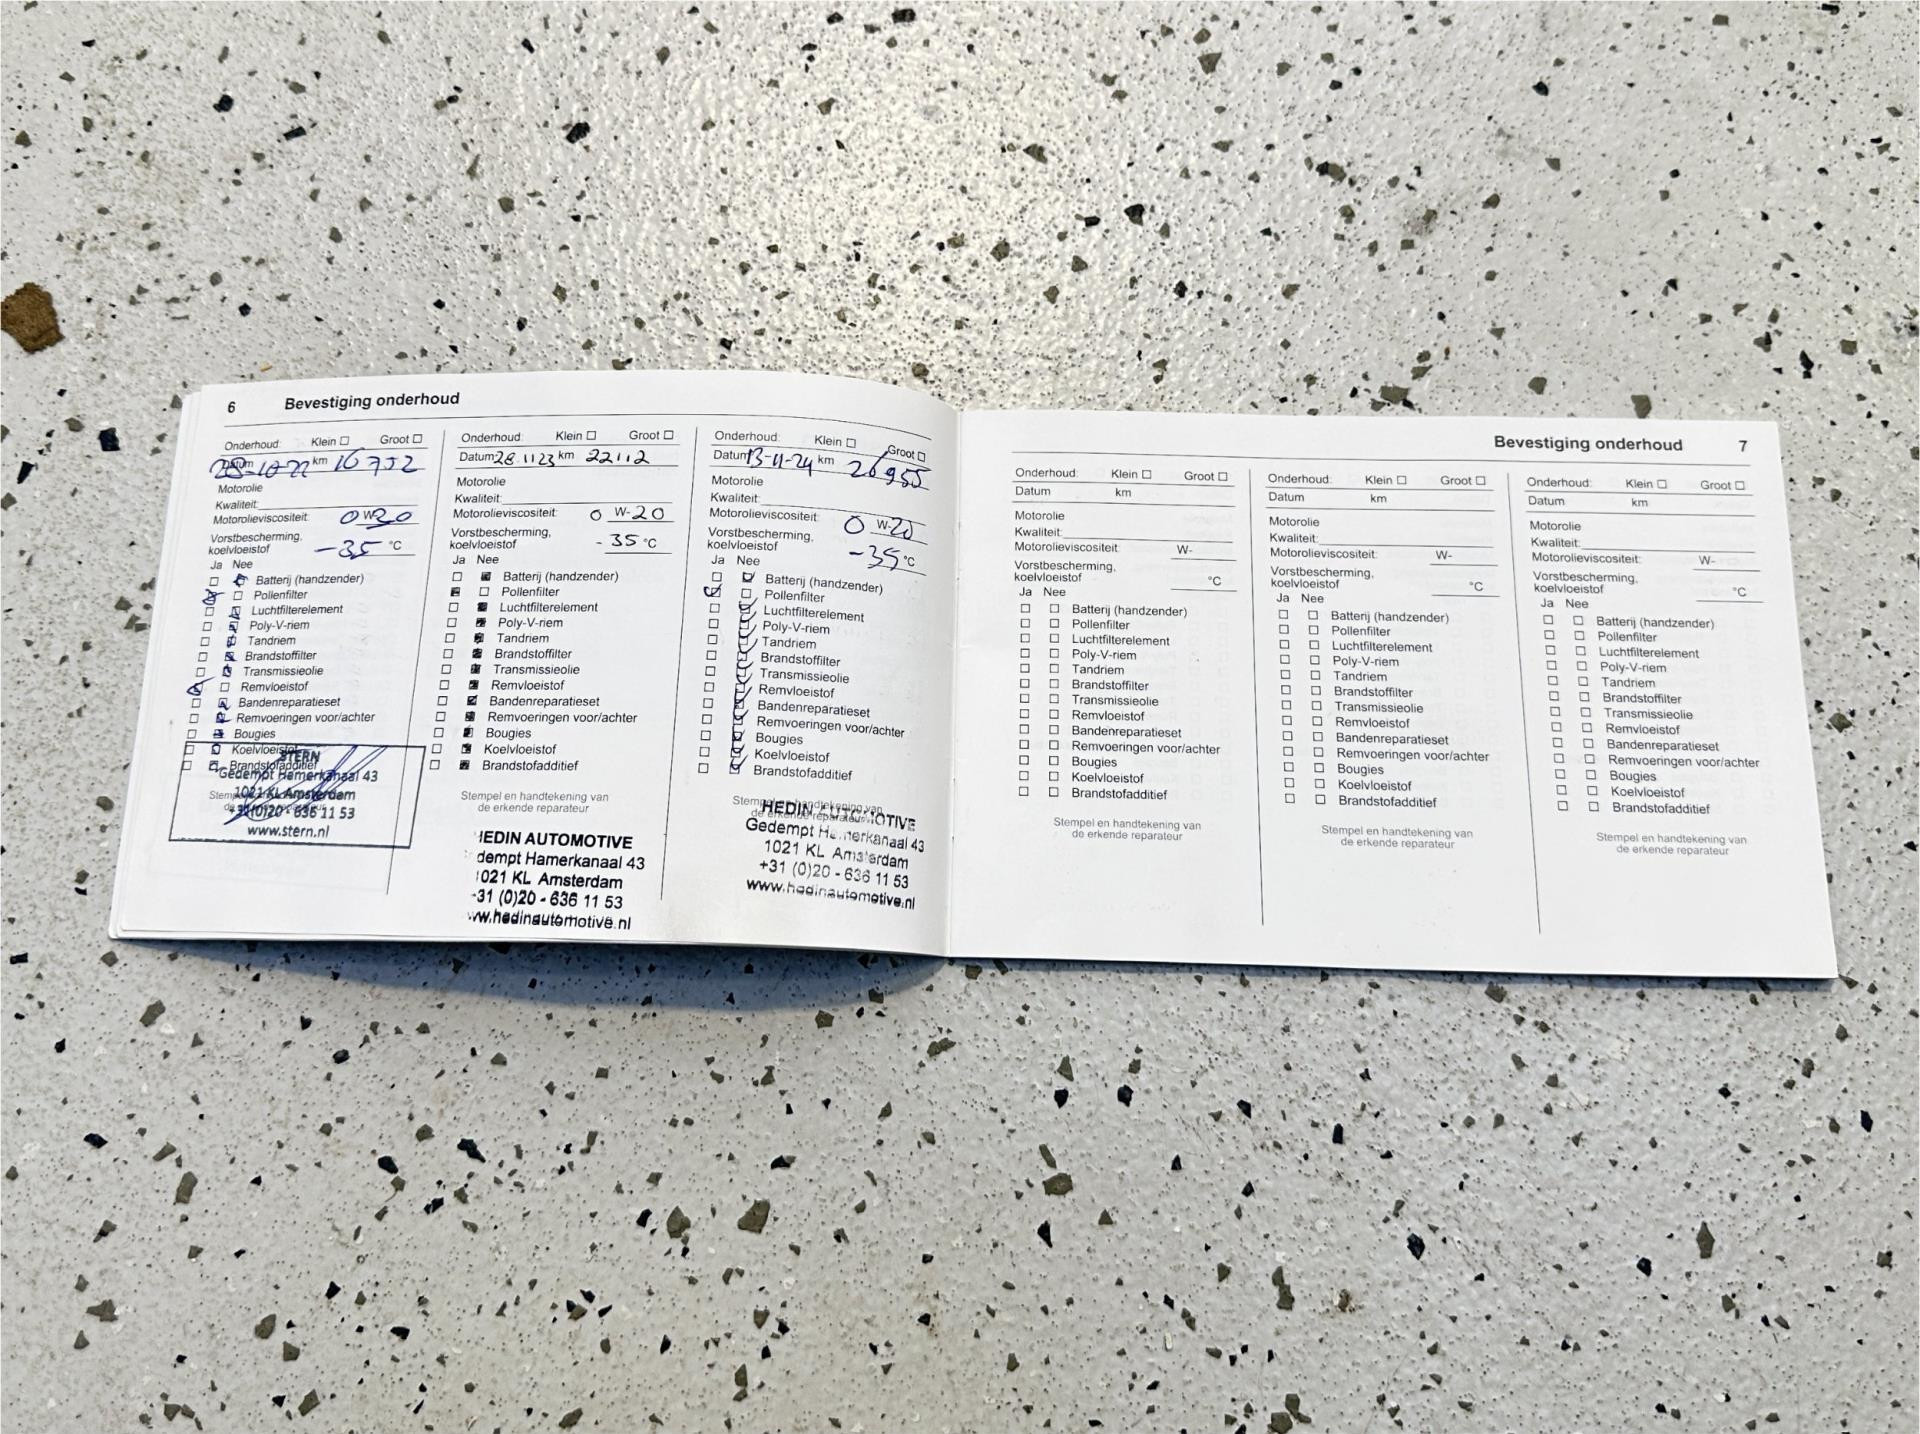 6 Bevestiging onderhoud
Onderhoud: Klein ☐ Groot ☐
Datum 28-10-22 km 16752
Motorolie
Kwaliteit:
Motorolieviscositeit: 0 W-20
Vorstbescherming,
koelvloeistof -35 °C
Ja Nee
Batterij (handzender)
Pollenfilter
Luchtfilterelement
Poly-V-riem
Tandriem
Brandstoffilter
Transmissieolie
Remvloeistof
Bandenreparatieset
Remvoeringen voor/achter
Bougies
Koelvloeistof
Brandstofadditief
STERN
Gedempt Hamerkanaal 43
1021 KL Amsterdam
+31(0)20 - 636 11 53
www.stern.nl
Onderhoud: Klein ☐ Groot ☐
Datum 28 11 23 km 22112
Motorolie
Kwaliteit:
Motorolieviscositeit: 0 W-20
Vorstbescherming,
koelvloeistof -35 °C
Ja Nee
Batterij (handzender)
Pollenfilter
Luchtfilterelement
Poly-V-riem
Tandriem
Brandstoffilter
Transmissieolie
Remvloeistof
Bandenreparatieset
Remvoeringen voor/achter
Bougies
Koelvloeistof
Brandstofadditief
Stempel en handtekening van
de erkende reparateur
HEDIN AUTOMOTIVE
dempt Hamerkanaal 43
1021 KL Amsterdam
31 (0)20 - 636 11 53
www.hedinautomotive.nl
Onderhoud: Klein ☐ Groot ☐
Datum 13-11-24 km 26955
Motorolie
Kwaliteit:
Motorolieviscositeit: 0 W-20
Vorstbescherming,
koelvloeistof -35 °C
Ja Nee
Batterij (handzender)
Pollenfilter
Luchtfilterelement
Poly-V-riem
Tandriem
Brandstoffilter
Transmissieolie
Remvloeistof
Bandenreparatieset
Remvoeringen voor/achter
Bougies
Koelvloeistof
Brandstofadditief
Stempel en handtekening van
de erkende reparateur
HEDIN AUTOMOTIVE
Gedempt Hamerkanaal 43
1021 KL Amsterdam
+31 (0)20 - 636 11 53
www.hedinautomotive.nl
Bevestiging onderhoud 7
Onderhoud: Klein ☐ Groot ☐
Datum km
Motorolie
Kwaliteit:
Motorolieviscositeit: W-
Vorstbescherming,
koelvloeistof °C
Ja Nee
Batterij (handzender)
Pollenfilter
Luchtfilterelement
Poly-V-riem
Tandriem
Brandstoffilter
Transmissieolie
Remvloeistof
Bandenreparatieset
Remvoeringen voor/achter
Bougies
Koelvloeistof
Brandstofadditief
Stempel en handtekening van
de erkende reparateur
Onderhoud: Klein ☐ Groot ☐
Datum km
Motorolie
Kwaliteit:
Motorolieviscositeit: W-
Vorstbescherming,
koelvloeistof °C
Ja Nee
Batterij (handzender)
Pollenfilter
Luchtfilterelement
Poly-V-riem
Tandriem
Brandstoffilter
Transmissieolie
Remvloeistof
Bandenreparatieset
Remvoeringen voor/achter
Bougies
Koelvloeistof
Brandstofadditief
Stempel en handtekening van
de erkende reparateur
Onderhoud: Klein ☐ Groot ☐
Datum km
Motorolie
Kwaliteit:
Motorolieviscositeit: W-
Vorstbescherming,
koelvloeistof °C
Ja Nee
Batterij (handzender)
Pollenfilter
Luchtfilterelement
Poly-V-riem
Tandriem
Brandstoffilter
Transmissieolie
Remvloeistof
Bandenreparatieset
Remvoeringen voor/achter
Bougies
Koelvloeistof
Brandstofadditief
Stempel en handtekening van
de erkende reparateur